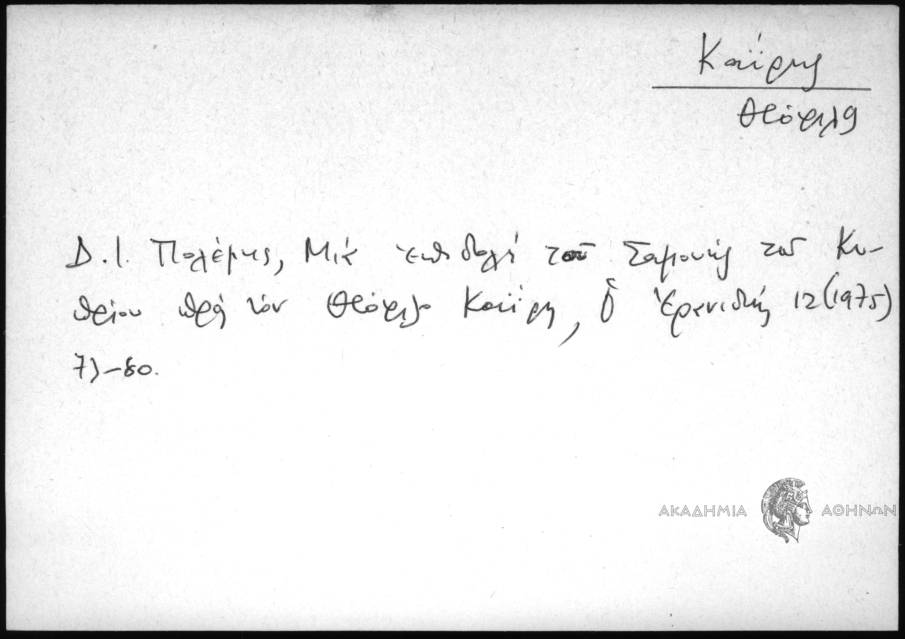 Καΐρης
Θεόφιλος
Δ. Ι. Πολέμης, Μιὰ ἐπιστολὴ τοῦ τοῦ Κυ-
πρίου πρὸς τὸν Θεόφιλο Καΐρη, Ὁ Ἐρανιστής 12 (1975)
73-80.
ΑΚΑΔΗΜΙΑ ΑΘΗΝΩΝ